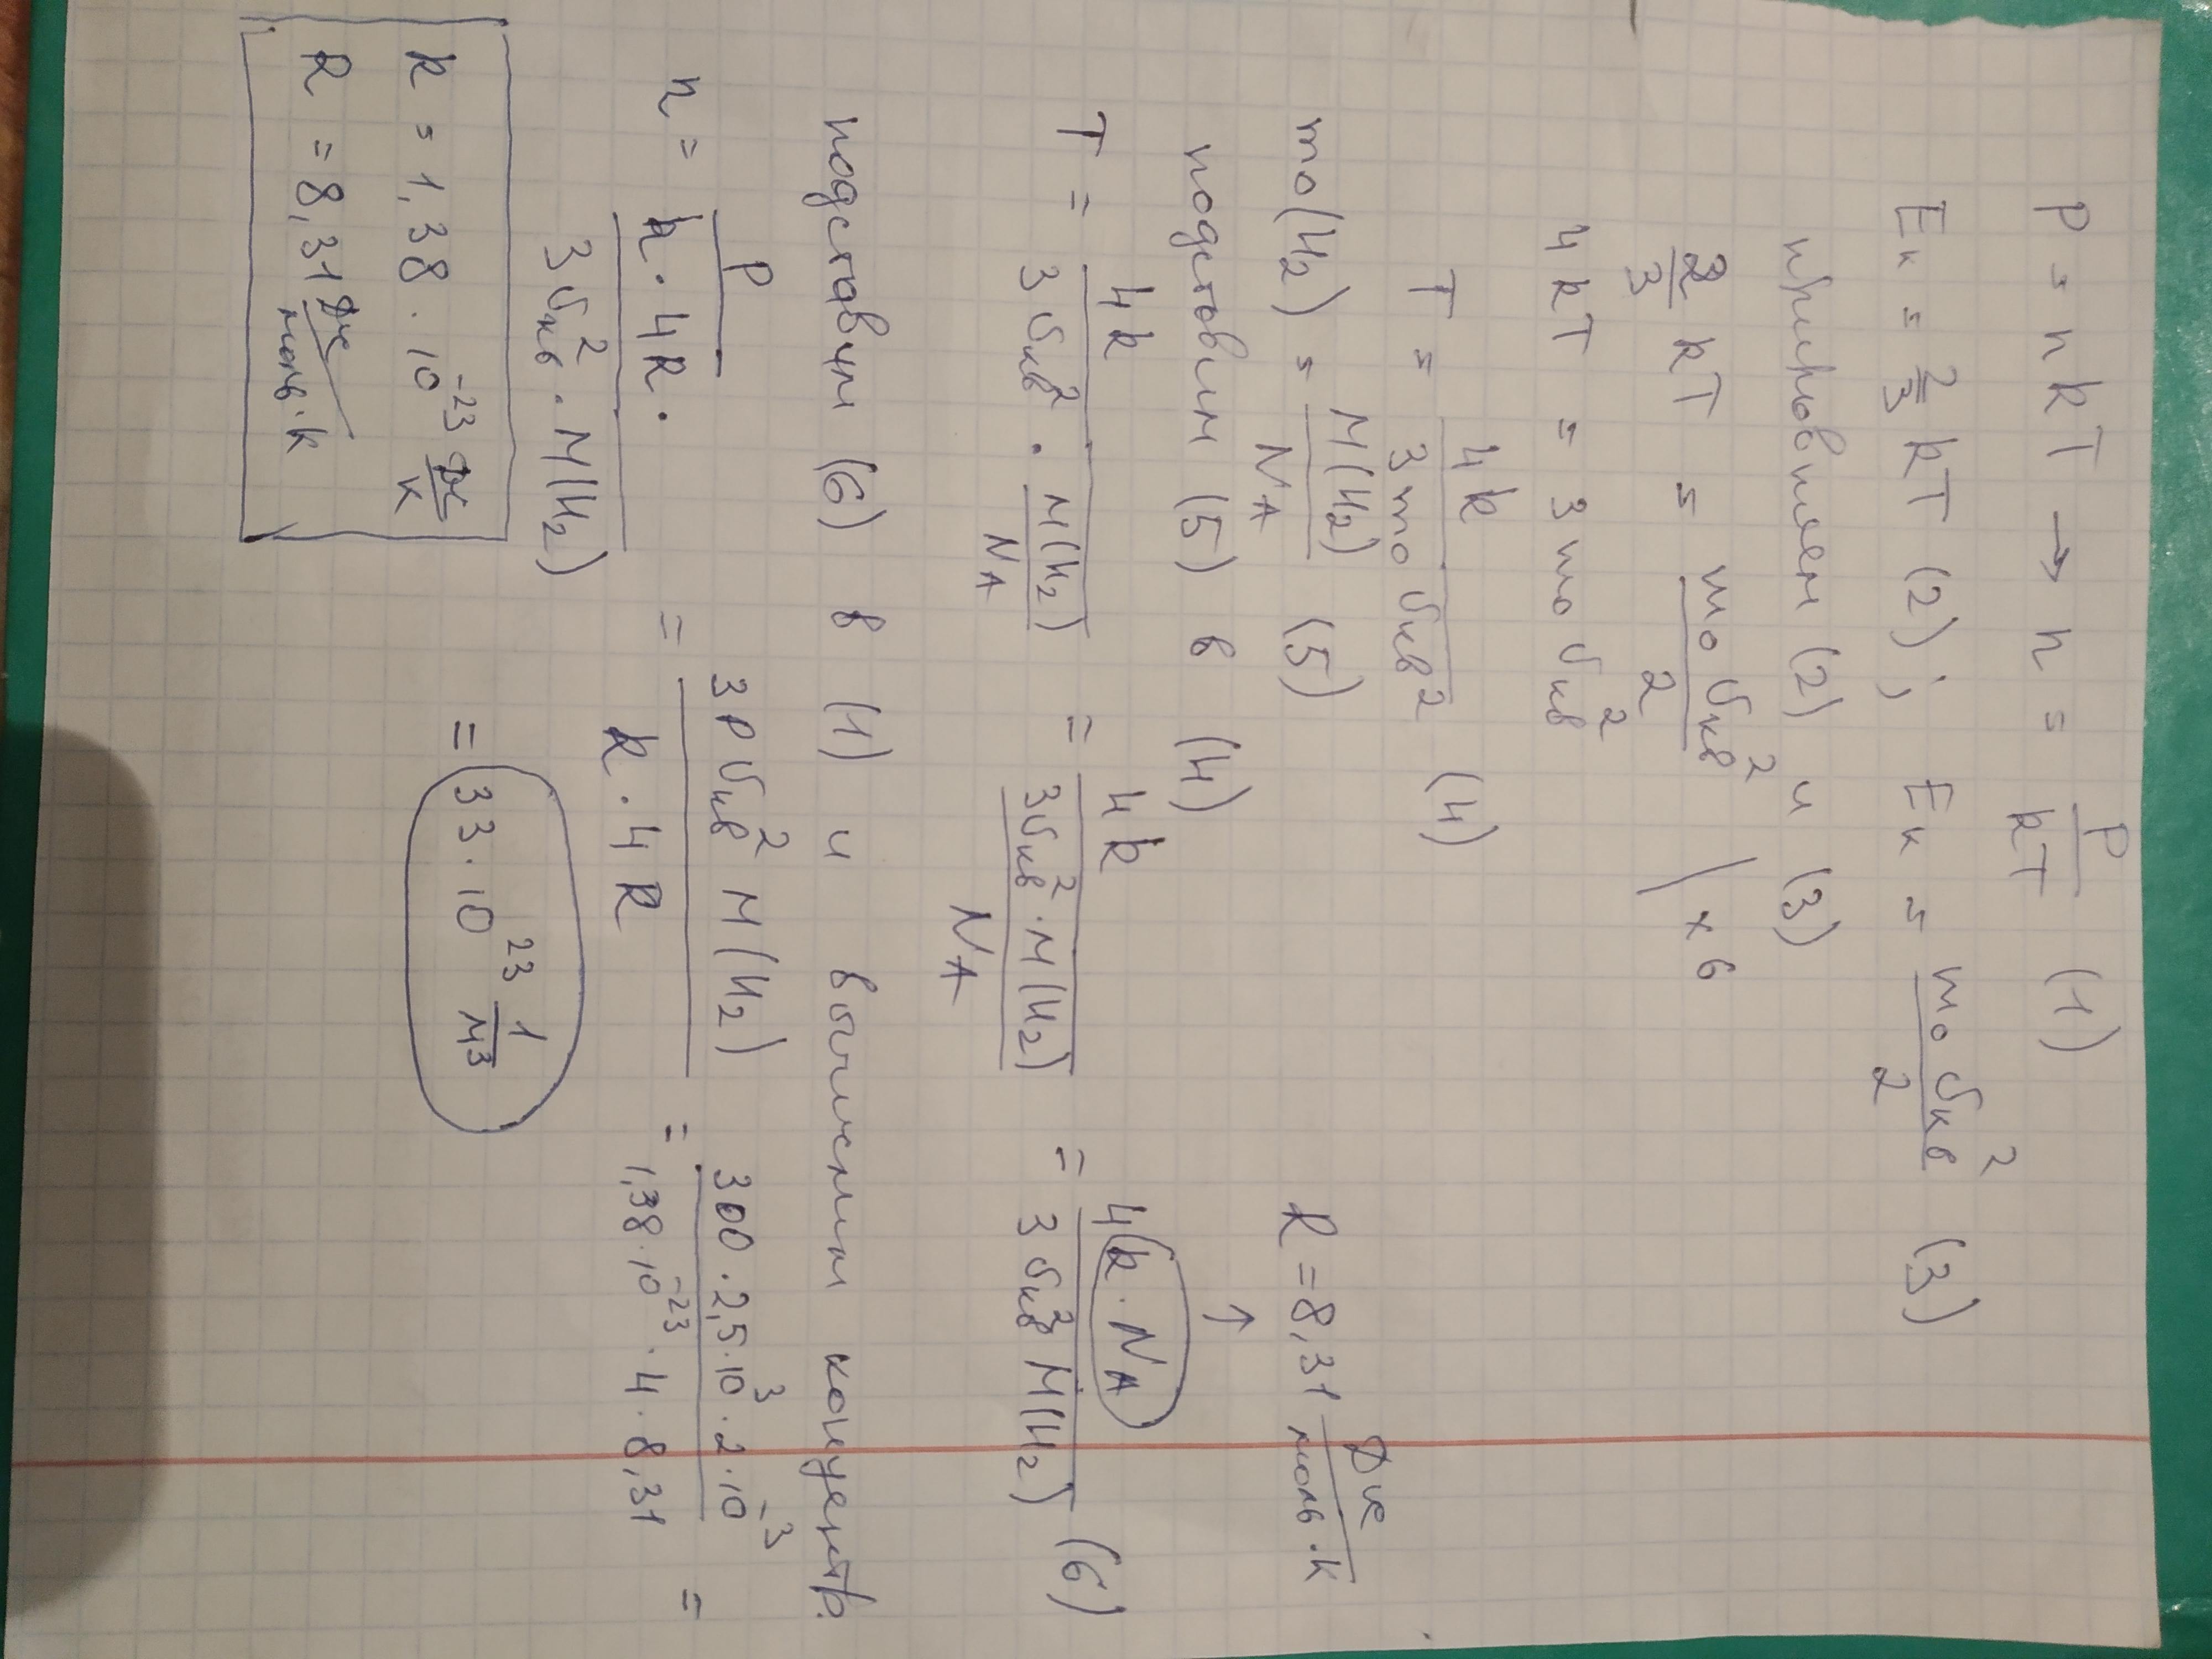 P = nkT → n = P/kT (1)
Eк = 2/3 kT (2); Eк = m₀υкв²/2 (3)
приравняем (2) и (3)
2/3 kT = m₀υкв²/2 | × 6
4kT = 3m₀υкв²
T = 4k/3m₀υкв² (4)
m₀(H₂) = M(H₂)/NA (5) R = 8,31 Дж/моль·К
подставим (5) в (4) ↑
T = 4k/3υкв² · M(H₂)/NA = 4k/(3υкв² · M(H₂)/NA) = 4k·NA/3υкв² M(H₂) (6)
подставим (6) в (1) и вычислим концентр.
n = P/(k · 4R · /3υкв² · M(H₂)) = 3Pυкв² M(H₂)/k · 4R = 300 · 2,5·10³ · 2·10⁻³/1,38·10⁻²³ · 4 · 8,31 =
= 33·10²³ 1/м³
k = 1,38 · 10⁻²³ Дж/К
R = 8,31 Дж/моль·К